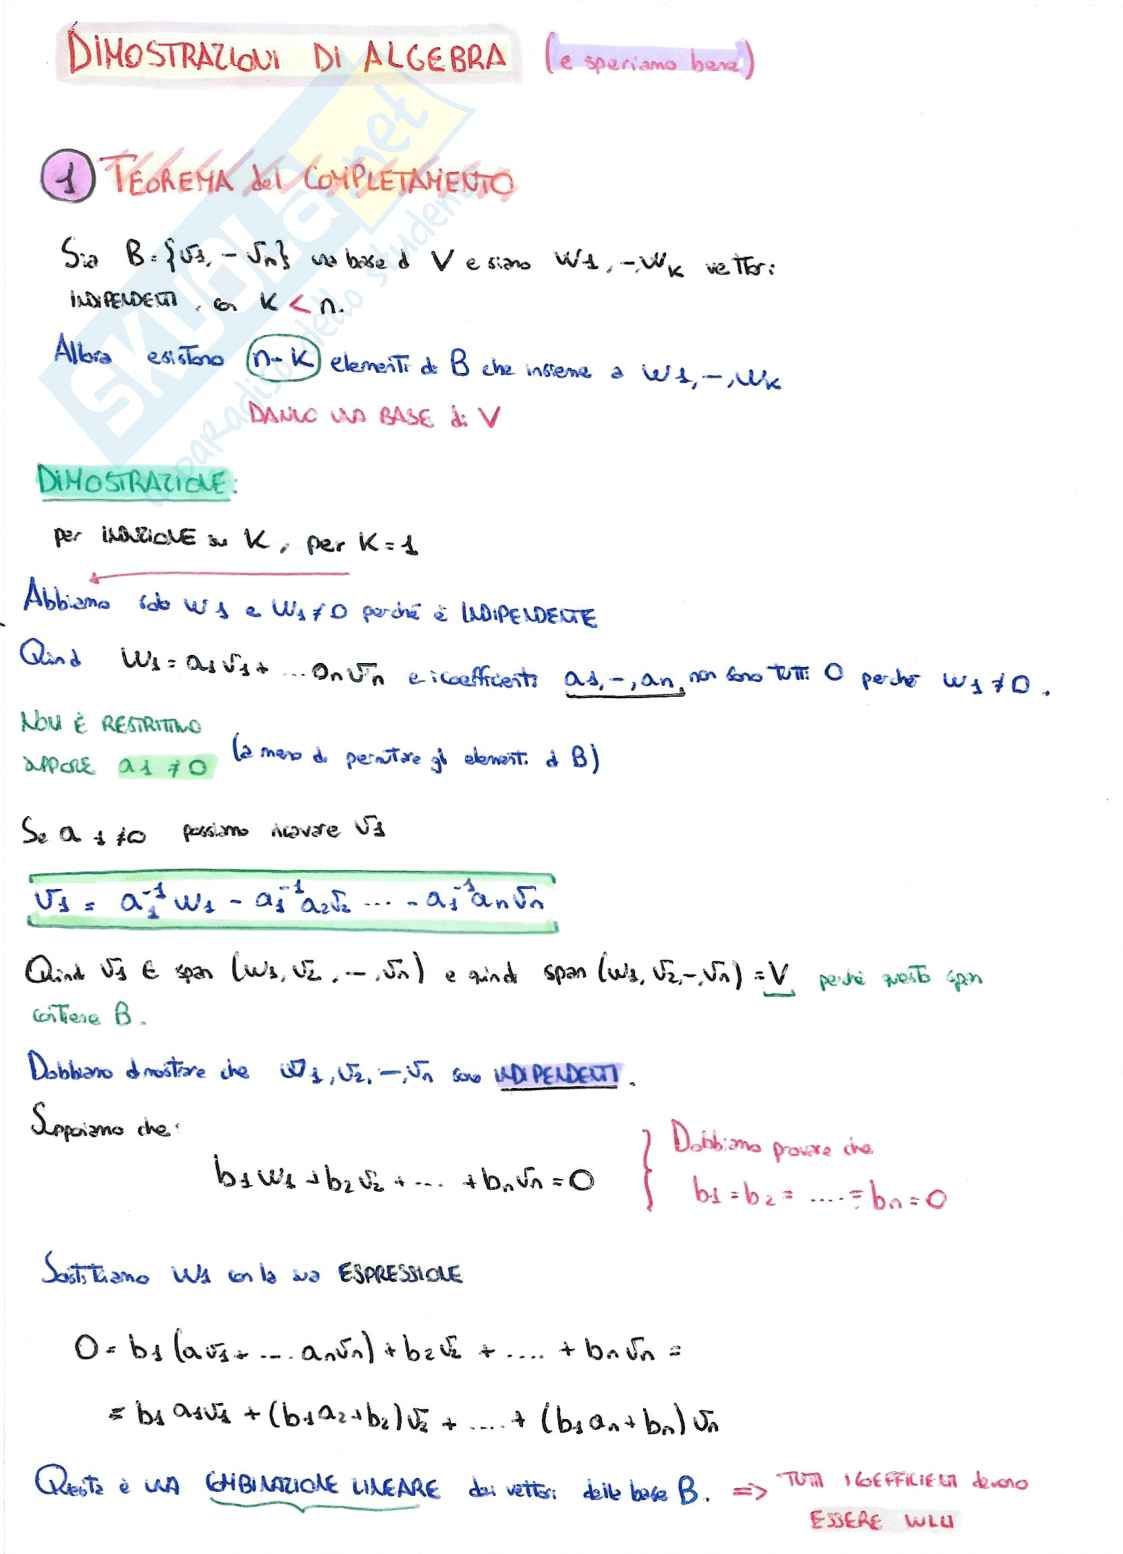 DIMOSTRAZIONI DI ALGEBRA (e speriamo bene)
1 TEOREMA del COMPLETAMENTO
Sia B = {v1, – vn} una base di V e siano w1, –, wk vettori
INDIPENDENTI, con K < n.
Allora esistono n-k elementi di B che insieme a w1, –, wk
DANNO UNA BASE di V
DIMOSTRAZIONE:
per INDUZIONE su K, per K = 1
Abbiamo solo w1 e w1 ≠ 0 perché è INDIPENDENTE
Quindi w1 = a1v1 + ... anvn e i coefficienti a1, –, an, non sono TUTTI 0 perché w1 ≠ 0.
NON È RESTRITTIVO
SUPPORRE a1 ≠ 0 (a meno di permutare gli elementi di B)
Se a1 ≠ 0 possiamo ricavare v1
v1 = a1⁻¹ w1 - a1⁻¹ a2v2 ... - a1⁻¹ anvn
Quindi v1 ∈ span (w1, v2, –, vn) e quindi span (w1, v2, –, vn) = V perché questo span
contiene B.
Dobbiamo dimostrare che w1, v2, –, vn sono INDIPENDENTI.
Supponiamo che:
b1w1 + b2v2 + ... + bnvn = 0
Dobbiamo provare che
b1 = b2 = .... = bn = 0
Sostituiamo w1 con la sua ESPRESSIONE
0 = b1 (av1 + .... anvn) + b2v2 + .... + bnvn =
= b1a1v1 + (b1a2 + b2)v2 + .... + (b1an + bn)vn
Questa è UNA COMBINAZIONE LINEARE dei vettori della base B. => TUTTI I COEFFICIENTI devono
ESSERE NULLI
SKUOLA.net
il paradiso dello studente